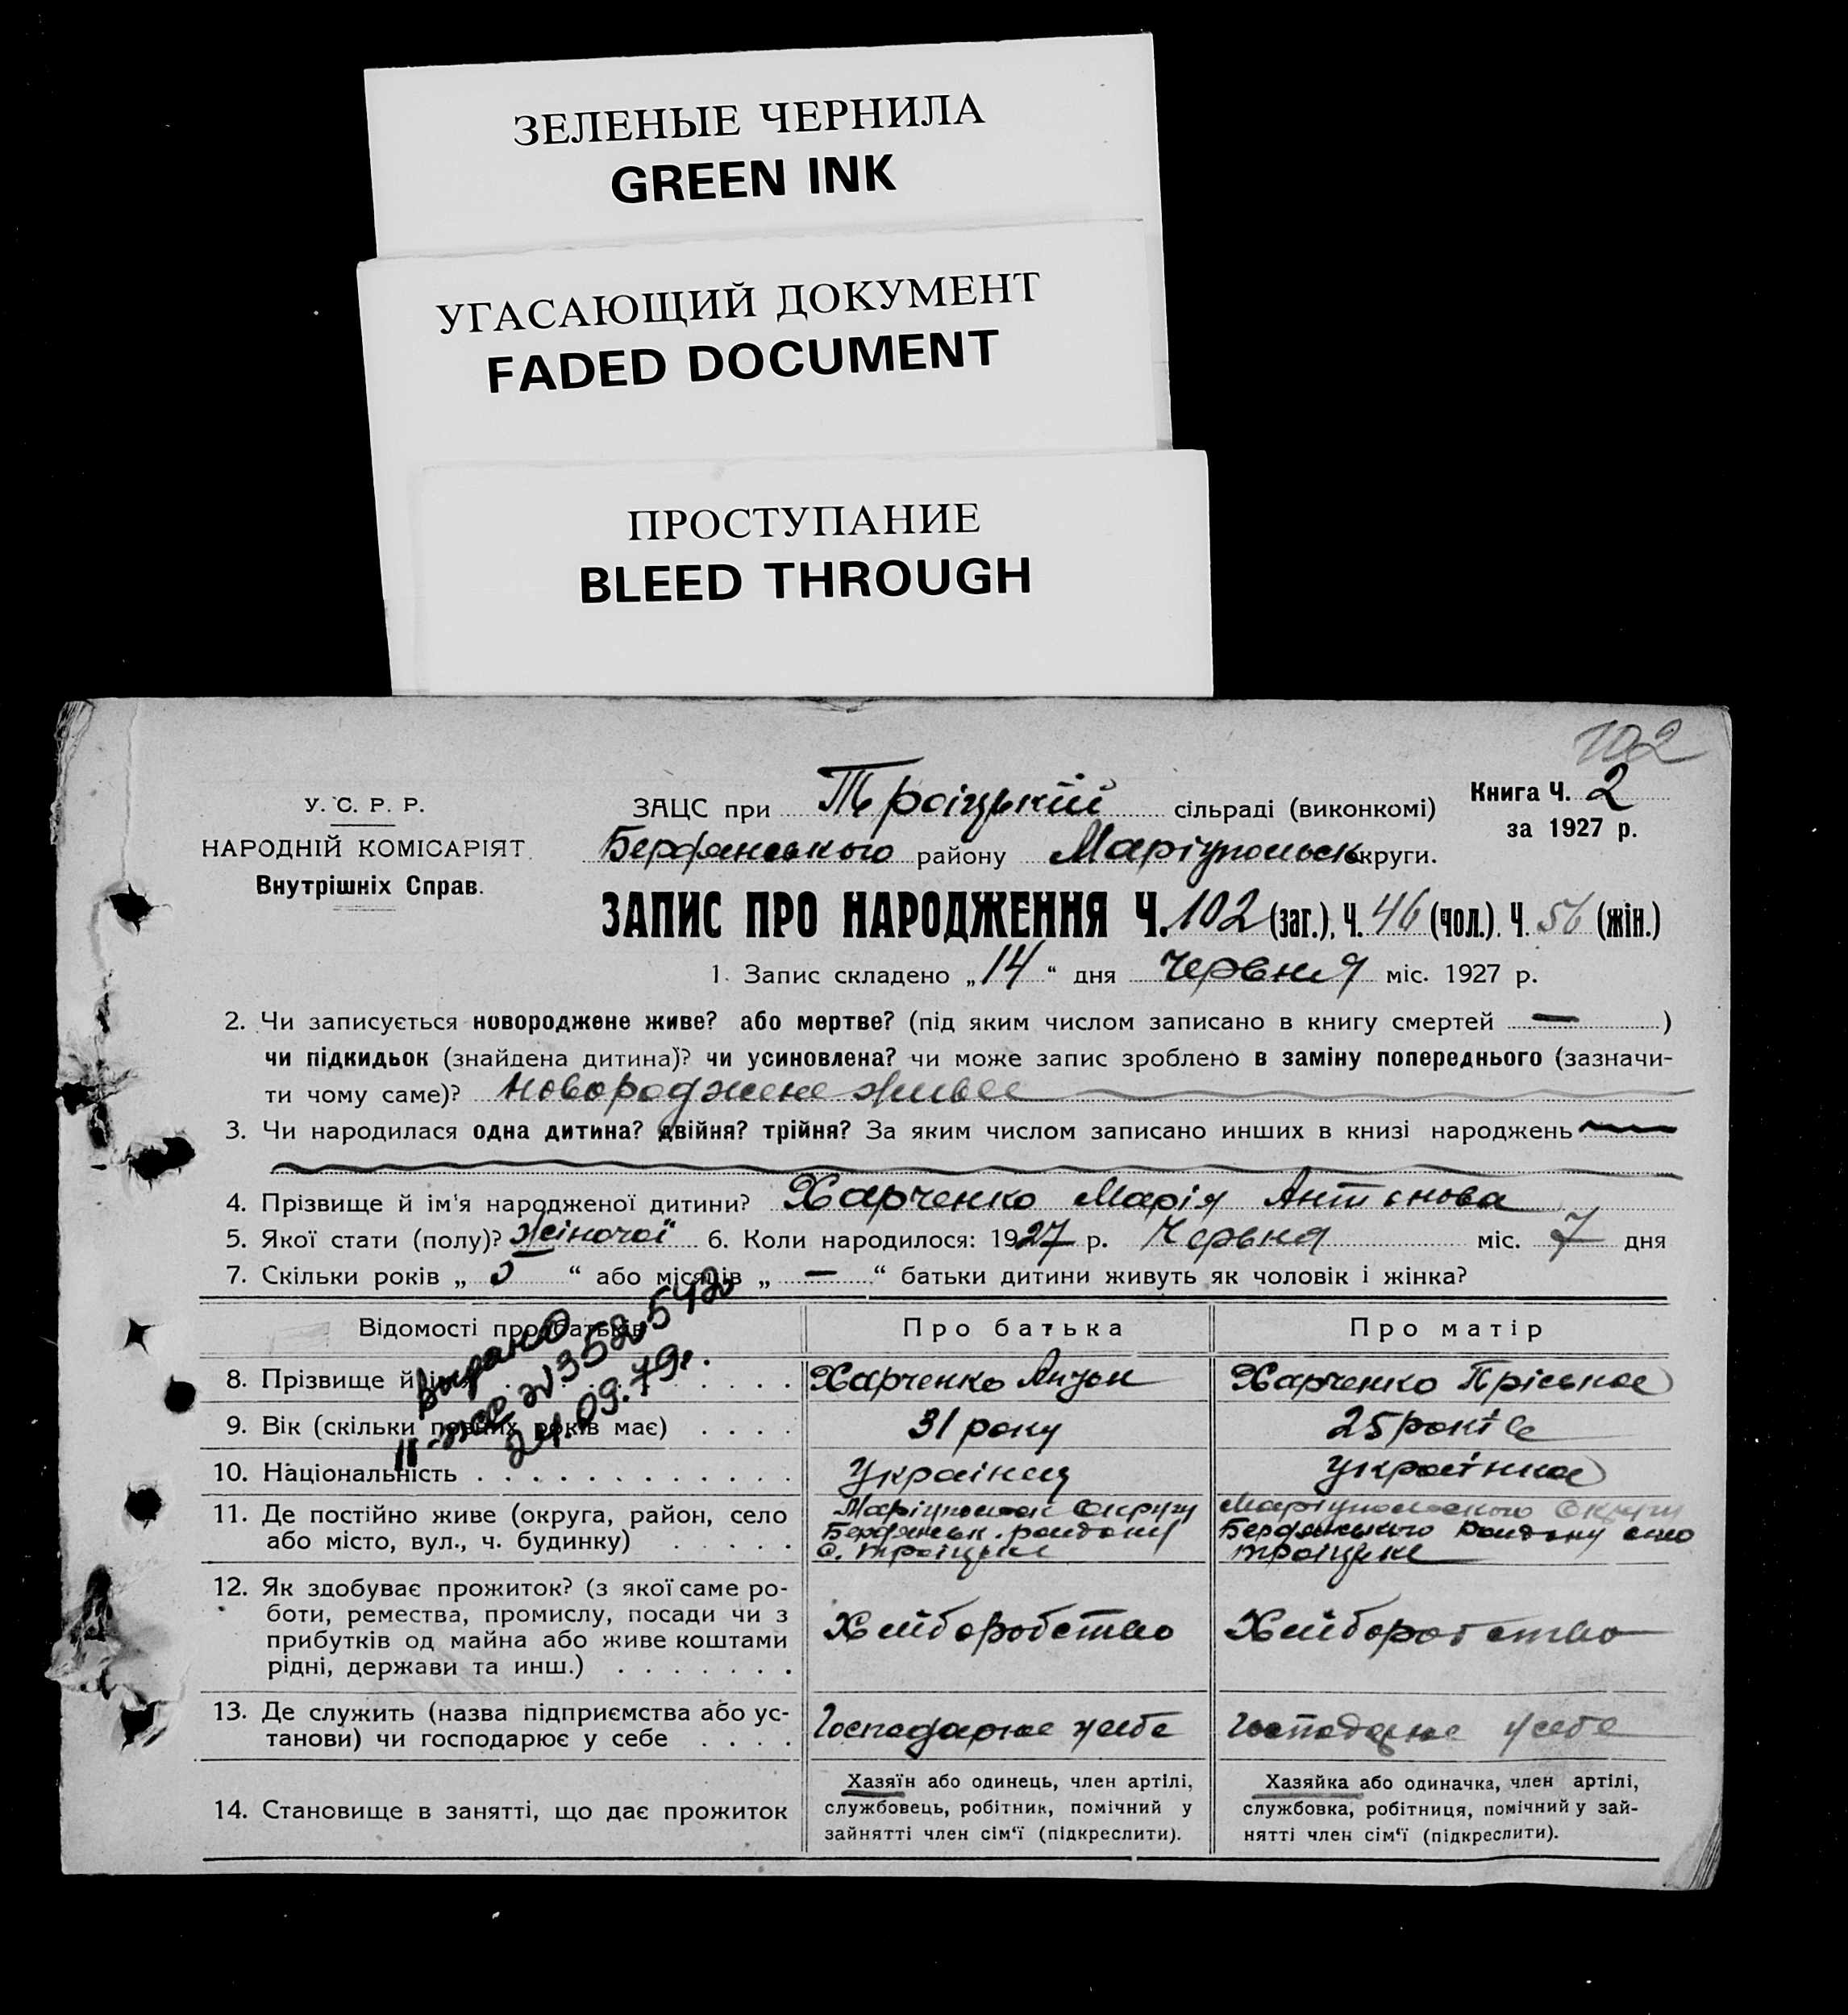 ЗЕЛЕНЫЕ ЧЕРНИЛА
GREEN INK
УГАСАЮЩИЙ ДОКУМЕНТ
FADED DOCUMENT
ПРОСТУПАНИЕ
BLEED THROUGH
102
У. С. Р. Р.
НАРОДНІЙ КОМІСАРІЯТ
Внутрішніх Справ.
Книга Ч. 2
за 1927 р.
ЗАЦС при Троіцькій сільраді (виконкомі)
Бердянського району Маріупольськ округи.
ЗАПИС ПРО НАРОДЖЕННЯ Ч. 102 (заг.), Ч. 46 (чол.). Ч. 56 (жін.)
1. Запис складено „14“ дня Червня міс. 1927 р.
2. Чи записується новороджене живе? або мертве? (під яким числом записано в книгу смертей —)
чи підкидьок (знайдена дитина)? чи усиновлена? чи може запис зроблено в заміну попереднього (зазначи-
ти чому саме)? Новороджене живее
3. Чи народилася одна дитина? двійня? трійня? За яким числом записано инших в книзі народжень
4. Прізвище й ім'я народженої дитини? Харченко Марія Антонова
5. Якої стати (полу)? Жіночої 6. Коли народилося: 1927 р. Червня міс. 7 дня
7. Скільки років „ 5 “ або місяців „ — “ батьки дитини живуть як чоловік і жінка?
Відомості про батьків Про батька Про матір
Выдано
24.09.79г.
8. Прізвище й ім'я Харченко Антон Харченко Пріська
9. Вік (скільки повних років має) 31 року 25 років
10. Національність Українец Українка
11. Де постійно живе (округа, район, село
або місто, вул., ч. будинку)
Маріупольськ Округу
Бердянськ. району
с. Троіцьке
Маріупольського Округу
Бердянського району село
Троіцьке
12. Як здобуває прожиток? (з якої саме ро-
боти, ремества, промислу, посади чи з
прибутків од майна або живе коштами
рідні, держави та инш.)
Хліборобство Хліборобство
13. Де служить (назва підприємства або ус-
танови) чи господарює у себе
Господарює у себе Господарює у себе
14. Становище в занятті, що дає прожиток
Хазяїн або одинець, член артілі,
службовець, робітник, помічний у
зайнятті член сім'ї (підкреслити).
Хазяйка або одиначка, член артілі,
службовка, робітниця, помічний у зай-
нятті член сім'ї (підкреслити).